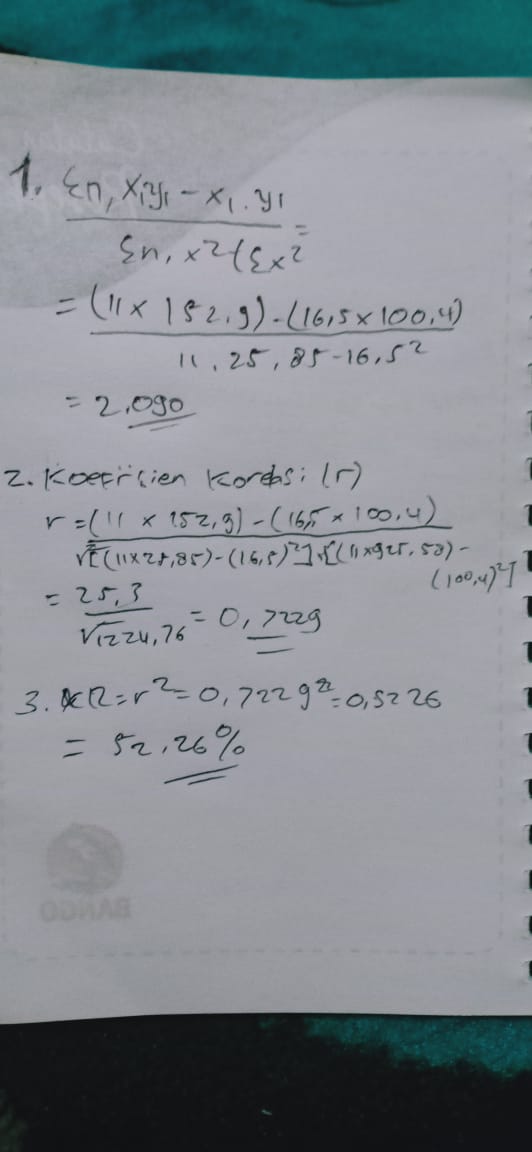 1. Σn, x₁y₁ - x₁ . y₁
Σn, x² (Σx² =
= (11 x 152,9) - (16,5 x 100,4)
11 . 25,85 - 16,5²
= 2,090
2. Koefisien Korelasi (r)
r = (11 x 152,9) - (16,5 x 100,4)
√[(11x25,85) - (16,5)²] . [(11x925,58) -
(100,4)²]
= 25,3
√1224,76 = 0,7229
3. KD = r² = 0,7229² = 0,5226
= 52,26%
BANGO